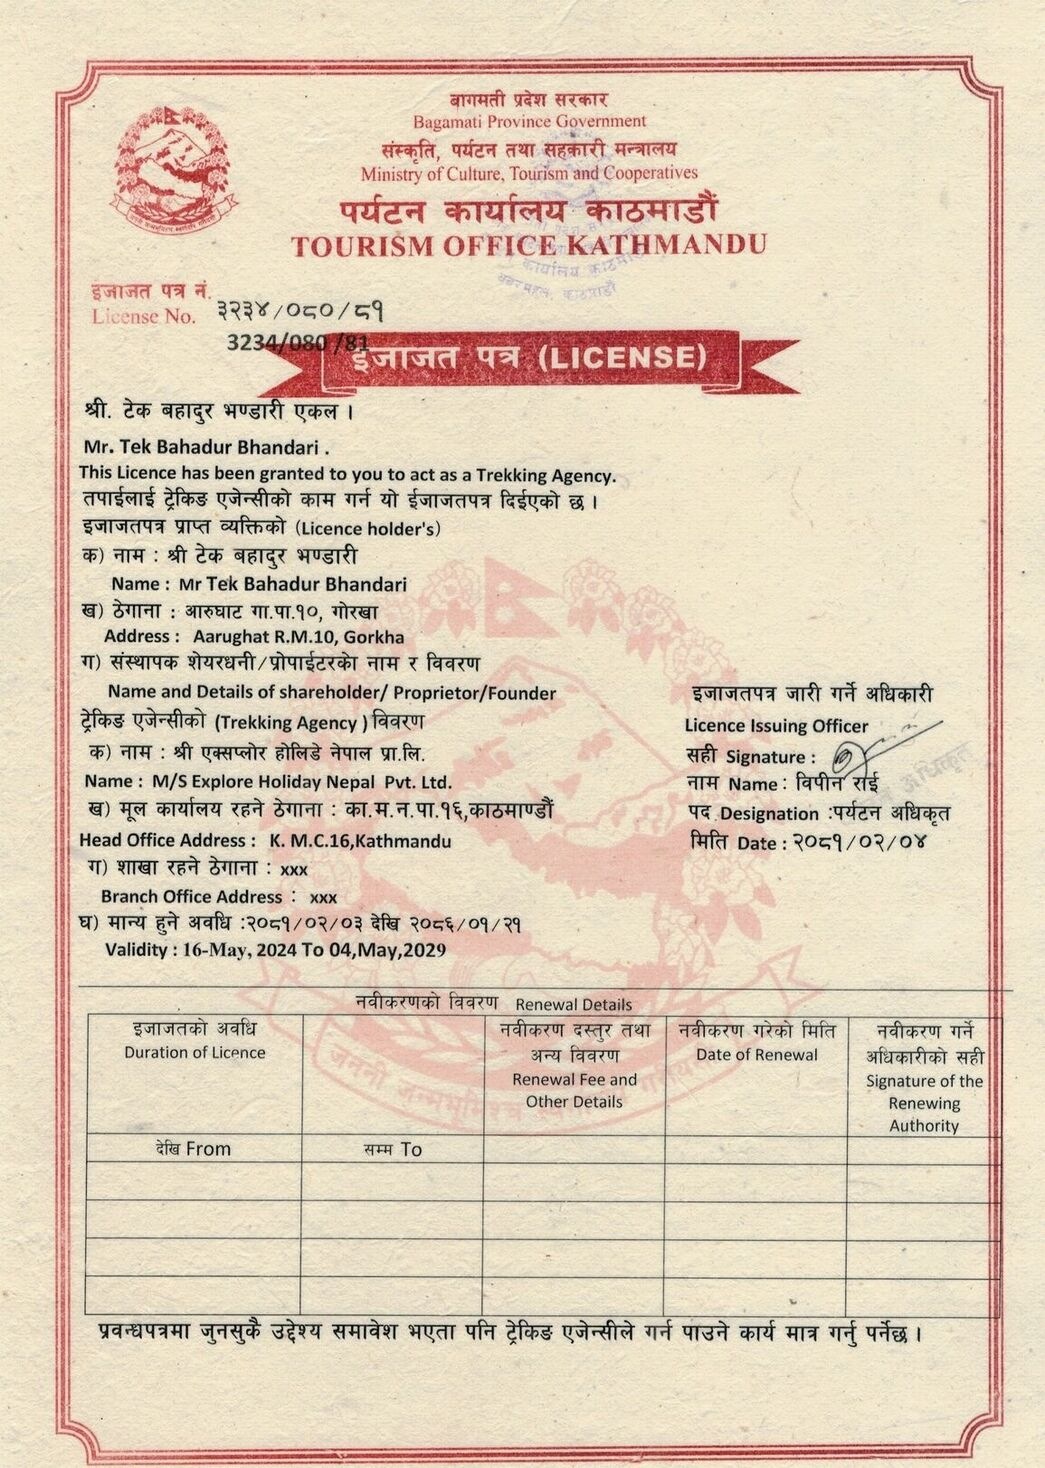 बागमती प्रदेश सरकार
Bagamati Province Government
संस्कृति, पर्यटन तथा सहकारी मन्त्रालय
Ministry of Culture, Tourism and Cooperatives
पर्यटन कार्यालय काठमाडौं
TOURISM OFFICE KATHMANDU
कार्यालय काठमा
काठमाडौं
इजाजत पत्र नं. ३२३४/०८०/८१
License No.
3234/080 /81
इजाजत पत्र (LICENSE)
श्री. टेक बहादुर भण्डारी एकल ।
Mr. Tek Bahadur Bhandari .
This Licence has been granted to you to act as a Trekking Agency.
तपाईलाई ट्रेकिङ एजेन्सीको काम गर्न यो ईजाजतपत्र दिईएको छ ।
इजाजतपत्र प्राप्त व्यक्तिको (Licence holder's)
क) नाम : श्री टेक बहादुर भण्डारी
Name : Mr Tek Bahadur Bhandari
ख) ठेगाना : आरुघाट गा.पा.१०, गोरखा
Address : Aarughat R.M.10, Gorkha
ग) संस्थापक शेयरधनी/प्रोपाईटरको नाम र विवरण
Name and Details of shareholder/ Proprietor/Founder
ट्रेकिङ एजेन्सीको (Trekking Agency ) विवरण
क) नाम : श्री एक्सप्लोर होलिडे नेपाल प्रा.लि.
Name : M/S Explore Holiday Nepal Pvt. Ltd.
ख) मूल कार्यालय रहने ठेगाना : का.म.न.पा.१६,काठमाण्डौं
Head Office Address : K. M.C.16,Kathmandu
ग) शाखा रहने ठेगाना : xxx
Branch Office Address : xxx
घ) मान्य हुने अवधि :२०८१/०२/०३ देखि २०८६/०१/२१
Validity : 16-May, 2024 To 04,May,2029
इजाजतपत्र जारी गर्ने अधिकारी
Licence Issuing Officer
सही Signature :
नाम Name : विपीन राई
अधिकृत
पद Designation :पर्यटन अधिकृत
मिति Date : २०८१/०२/०४
नवीकरणको विवरण Renewal Details
इजाजतको अवधि
Duration of Licence
नवीकरण दस्तुर तथा
अन्य विवरण
Renewal Fee and
Other Details
नवीकरण गरेको मिति
Date of Renewal
नवीकरण गर्ने
अधिकारीको सही
Signature of the
Renewing
Authority
देखि From
सम्म To
प्रवन्धपत्रमा जुनसुकै उद्देश्य समावेश भएता पनि ट्रेकिङ एजेन्सीले गर्न पाउने कार्य मात्र गर्नु पर्नेछ ।